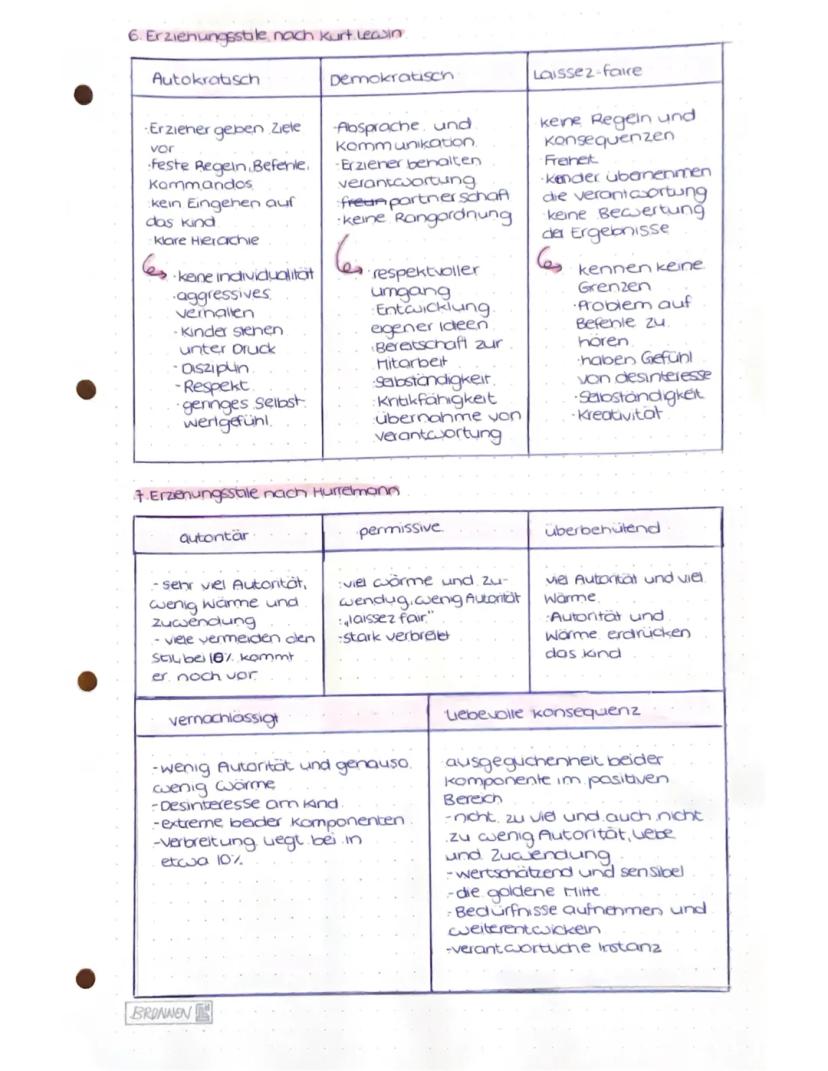 6. Erziehungsstile nach Kurt Lewin
Autokratisch
·Erzieher geben Ziele
vor
·feste Regeln, Befehle,
Kommandos
·kein Eingehen auf
das Kind
·klare Hierachie
·keine Individualität
·aggressives
verhalten
·Kinder stehen
unter Druck
-Disziplin
-Respekt
·geringes Selbst-
wertgefühl
Demokratisch
·Absprache und
Kommunikation
·Erzieher behalten
verantwortung
·freun partnerschaft
·keine Rangordnung
·respektvoller
umgang
·Entwicklung
eigener Ideen
·Bereitschaft zur
Mitarbeit
·Selbständigkeit
·Kritikfähigkeit
·übernahme von
verantwortung
Laissez-faire
keine Regeln und
Konsequenzen
·Freiheit
·kinder übernehmen
die verantwortung
·keine Bewertung
der Ergebnisse
kennen keine
Grenzen
·Problem auf
Befehle zu
hören
·haben Gefühl
von desinteresse
·Selbständigkeit
·Kreativität
7. Erziehungsstile nach Hurrelmann
autoritär
-sehr viel Autorität,
wenig wärme und
zuwendung
-viele vermeiden den
Stil, bei 10% kommt
er noch vor
permissive
·viel wärme und zu-
wendug, wenig Autorität
·„laissez fair"
-stark verbreitet
überbehütend
viel Autorität und viel
Wärme
·Autorität und
Wärme erdrücken
das kind
vernachlässigt
-wenig Autorität und genauso
wenig wärme
-Desinteresse am Kind
-extreme beider Komponenten
-verbreitung liegt bei in
etwa 10%
Liebevolle Konsequenz
ausgeglichenheit beider
Komponente im positiven
Bereich
-nicht zu viel und auch nicht
zu wenig Autorität, Liebe
und Zuwendung
-wertschätzend und sensibel
-die goldene Mitte
-Bedürfnisse aufnehmen und
weiterentwickeln
-verantwortliche Instanz
BRUNNEN